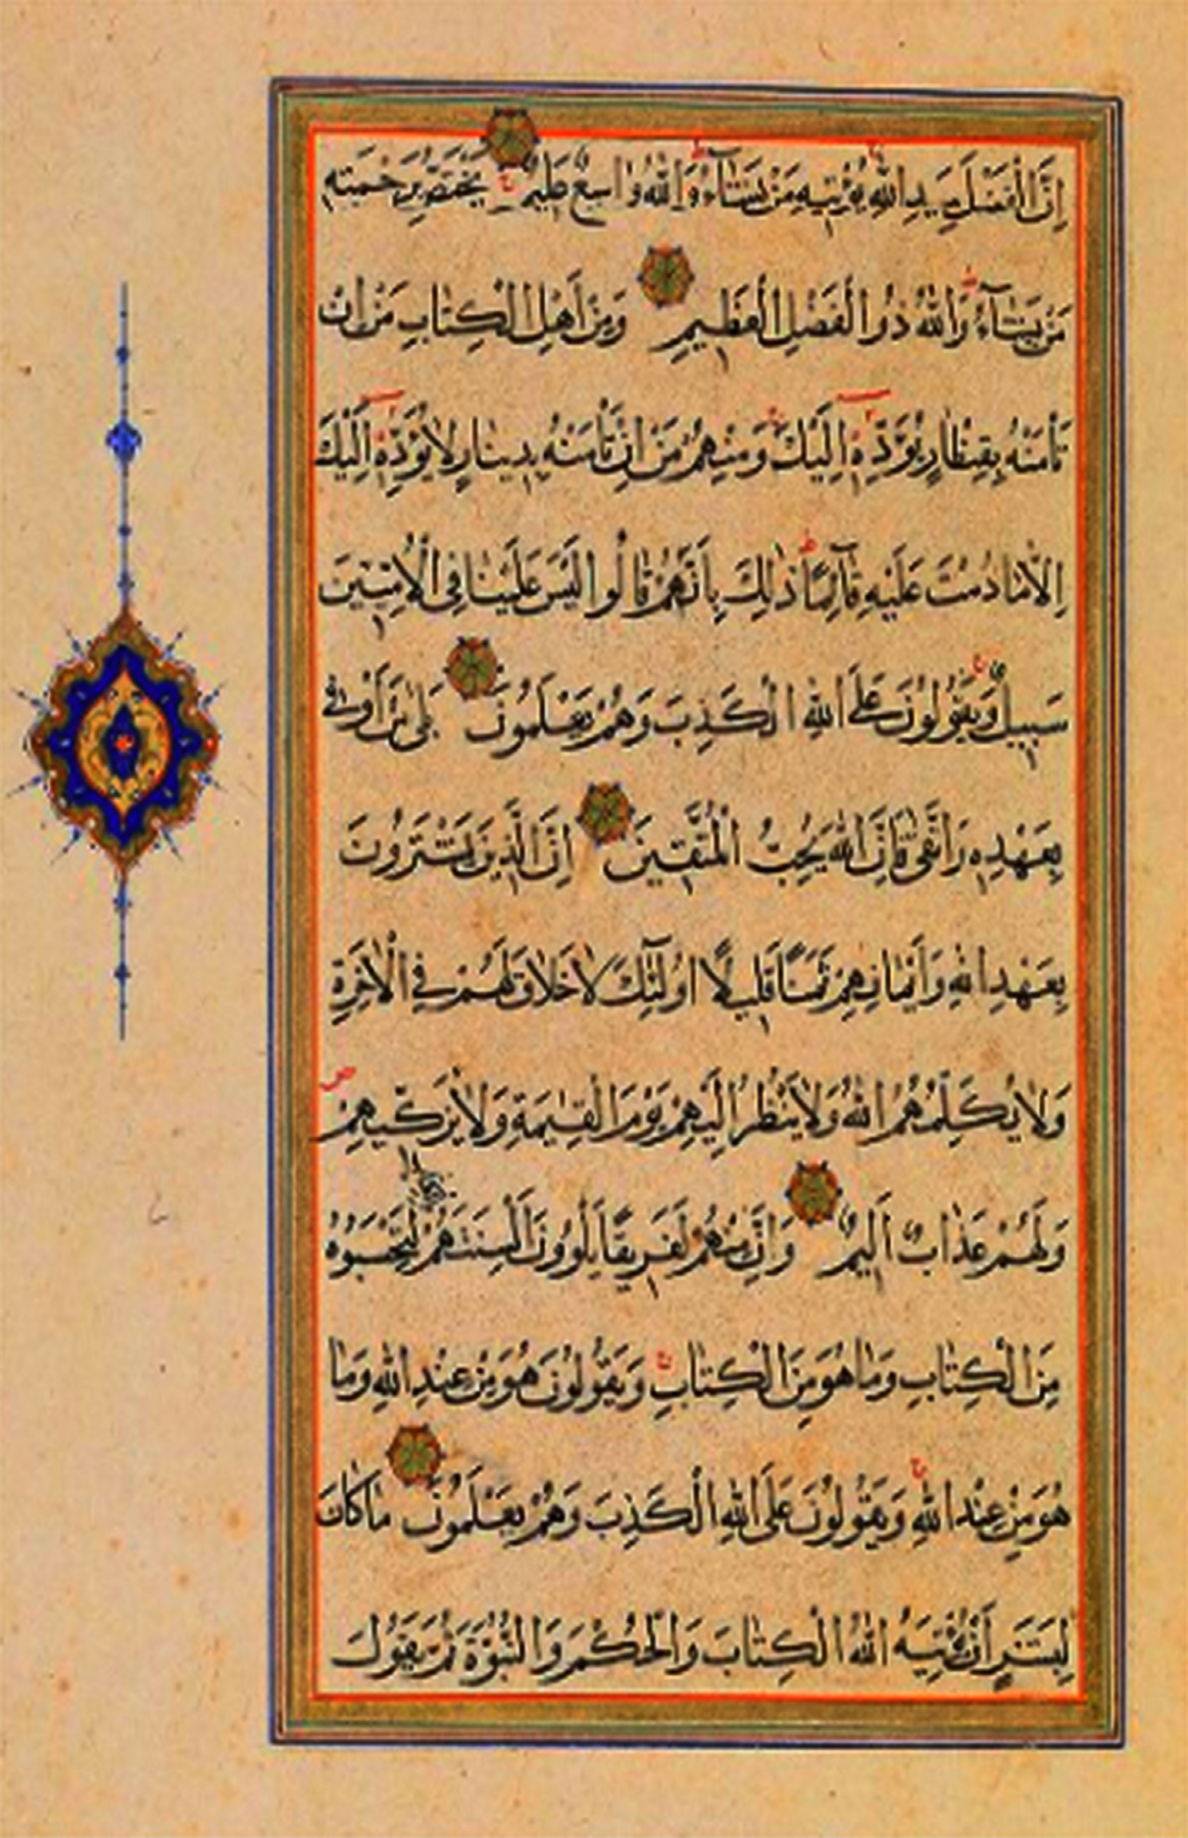 إِنَّ الْفَضْلَ بِيَدِ اللّٰهِ يُؤْتِيهِ مَنْ يَشَآءُ وَاللّٰهُ وَاسِعٌ عَلِيمٌ يَخْتَصُّ بِرَحْمَتِهِ
مَنْ يَشَآءُ وَاللّٰهُ ذُو الْفَضْلِ الْعَظِيمِ وَمِنْ أَهْلِ الْكِتَابِ مَنْ إِنْ
تَأْمَنْهُ بِقِنْطَارٍ يُؤَدِّهِ إِلَيْكَ وَمِنْهُمْ مَنْ إِنْ تَأْمَنْهُ بِدِينَارٍ لَا يُؤَدِّهِ إِلَيْكَ
إِلَّا مَا دُمْتَ عَلَيْهِ قَآئِمًا ذٰلِكَ بِأَنَّهُمْ قَالُوا لَيْسَ عَلَيْنَا فِي الْأُمِّيِّينَ
سَبِيلٌ وَيَقُولُونَ عَلَى اللّٰهِ الْكَذِبَ وَهُمْ يَعْلَمُونَ بَلٰى مَنْ أَوْفٰى
بِعَهْدِهِ وَاتَّقٰى فَإِنَّ اللّٰهَ يُحِبُّ الْمُتَّقِينَ إِنَّ الَّذِينَ يَشْتَرُونَ
بِعَهْدِ اللّٰهِ وَأَيْمَانِهِمْ ثَمَنًا قَلِيلًا أُولٰٓئِكَ لَا خَلَاقَ لَهُمْ فِي الْأٰخِرَةِ
وَلَا يُكَلِّمُهُمُ اللّٰهُ وَلَا يَنْظُرُ إِلَيْهِمْ يَوْمَ الْقِيٰمَةِ وَلَا يُزَكِّيهِمْ
وَلَهُمْ عَذَابٌ أَلِيمٌ وَإِنَّ مِنْهُمْ لَفَرِيقًا يَلْوُونَ أَلْسِنَتَهُمْ لِتَحْسَبُوهُ
مِنَ الْكِتَابِ وَمَا هُوَ مِنَ الْكِتَابِ وَيَقُولُونَ هُوَ مِنْ عِنْدِ اللّٰهِ وَمَا
هُوَ مِنْ عِنْدِ اللّٰهِ وَيَقُولُونَ عَلَى اللّٰهِ الْكَذِبَ وَهُمْ يَعْلَمُونَ مَا كَانَ
لِبَشَرٍ أَنْ يُؤْتِيَهُ اللّٰهُ الْكِتَابَ وَالْحُكْمَ وَالنُّبُوَّةَ ثُمَّ يَقُولَ